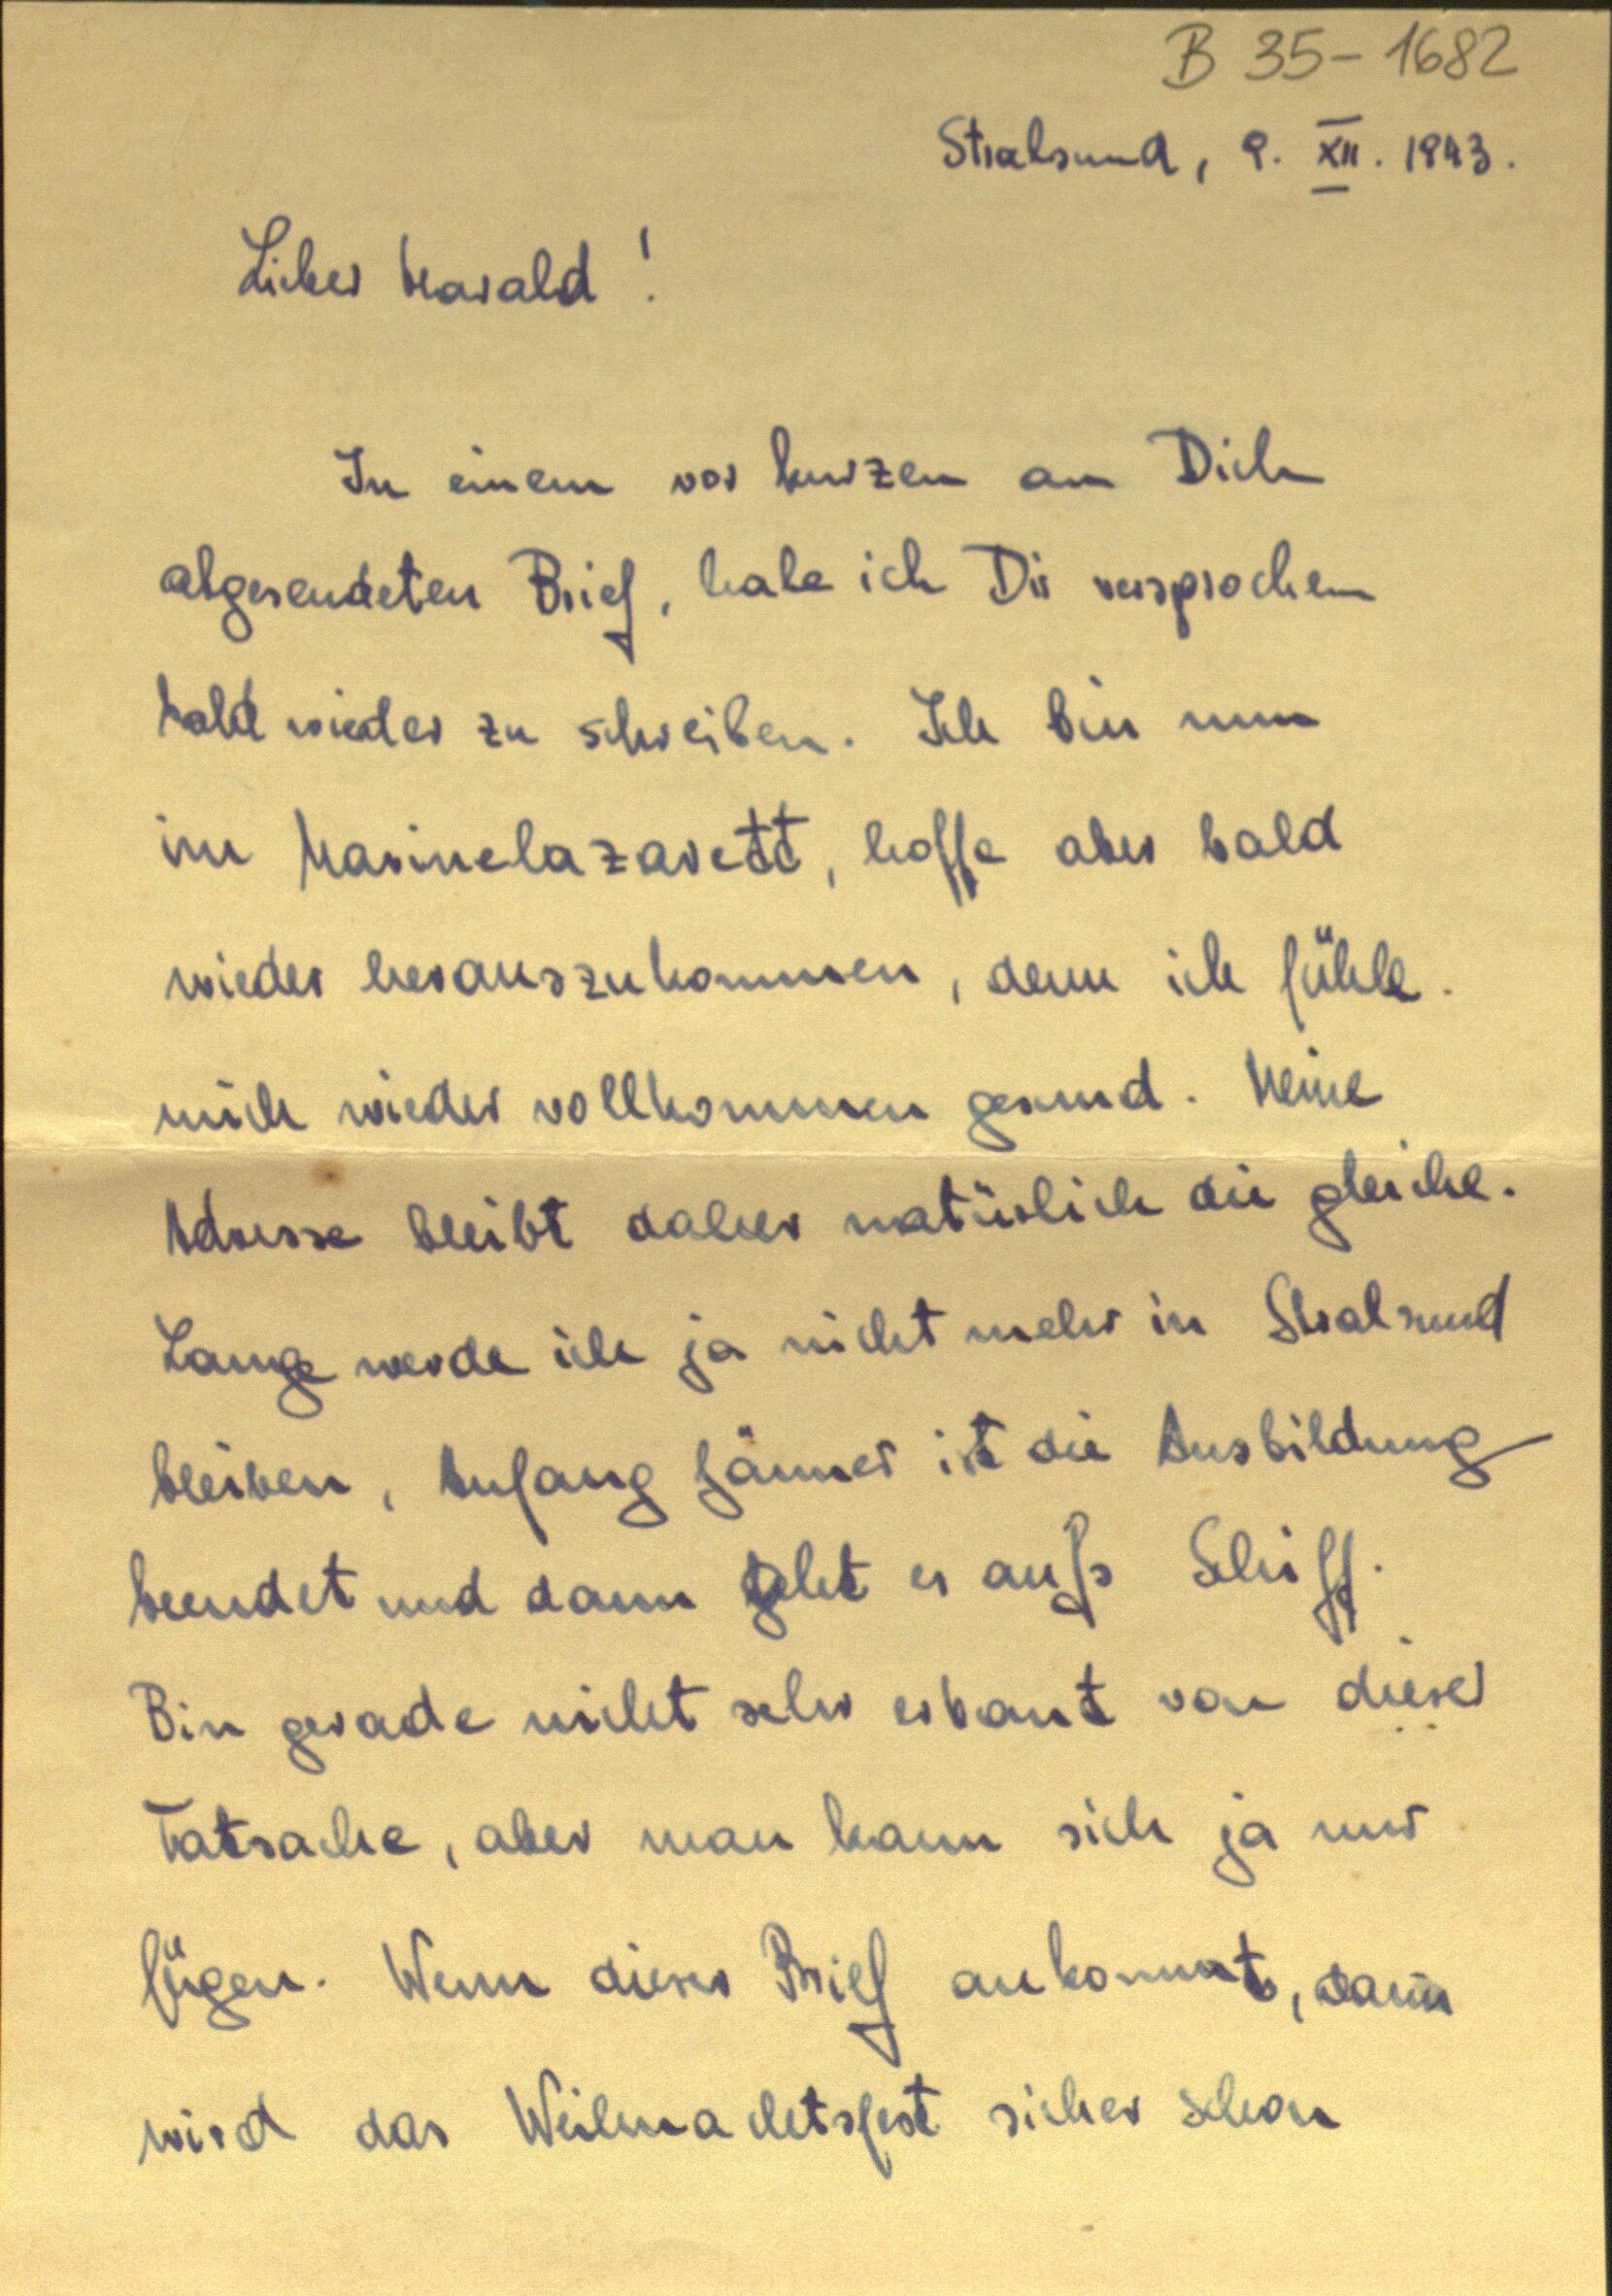 B 35-1682
Stralsund, 9. XII. 1943.
Lieber Harald!
In einem vor kurzen an Dich
abgesendeten Brief, habe ich Dir versprochen
bald wieder zu schreiben. Ich bin nun
im Marinelazarett, hoffe aber bald
wieder herauszukommen, denn ich fühle.
mich wieder vollkommen gesund. Meine
Adresse bleibt daher natürlich die gleiche.
Lange werde ich ja nicht mehr in Stralsund
bleiben, Anfang Jänner ist die Ausbildung
beendet und dann geht es aufs Schiff.
Bin gerade nicht sehr erbaut von dieser
Tatsache, aber man kann sich ja nur
fügen. Wenn dieser Brief ankommt, dann
wird das Weihnachtsfest sicher schon